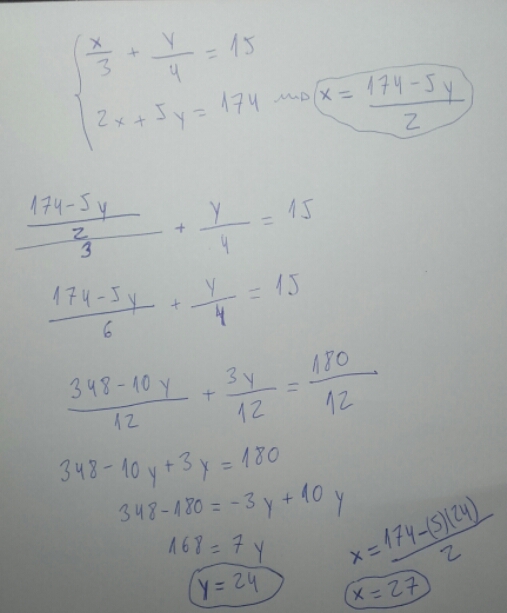 x/3 + y/4 = 15
2x + 5y = 174 → x = (174 - 5y)/2
((174 - 5y)/2)/3 + y/4 = 15
(174 - 5y)/6 + y/4 = 15
(348 - 10y)/12 + 3y/12 = 180/12
348 - 10y + 3y = 180
348 - 180 = -3y + 10y
168 = 7y
y = 24
x = (174 - (5)(24))/2
x = 27